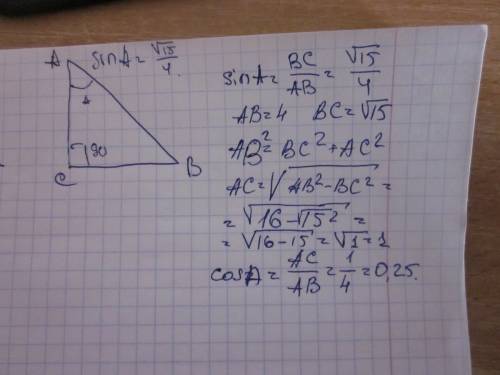 A sinA = √15/4.
A
90
C B
sinA = BC/AB = √15/4
AB=4 BC=√15
AB²=BC²+AC²
AC=√AB²-BC² =
=√16-√15² =
=√16-15=√1=1
cosA = AC/AB = 1/4 = 0,25.